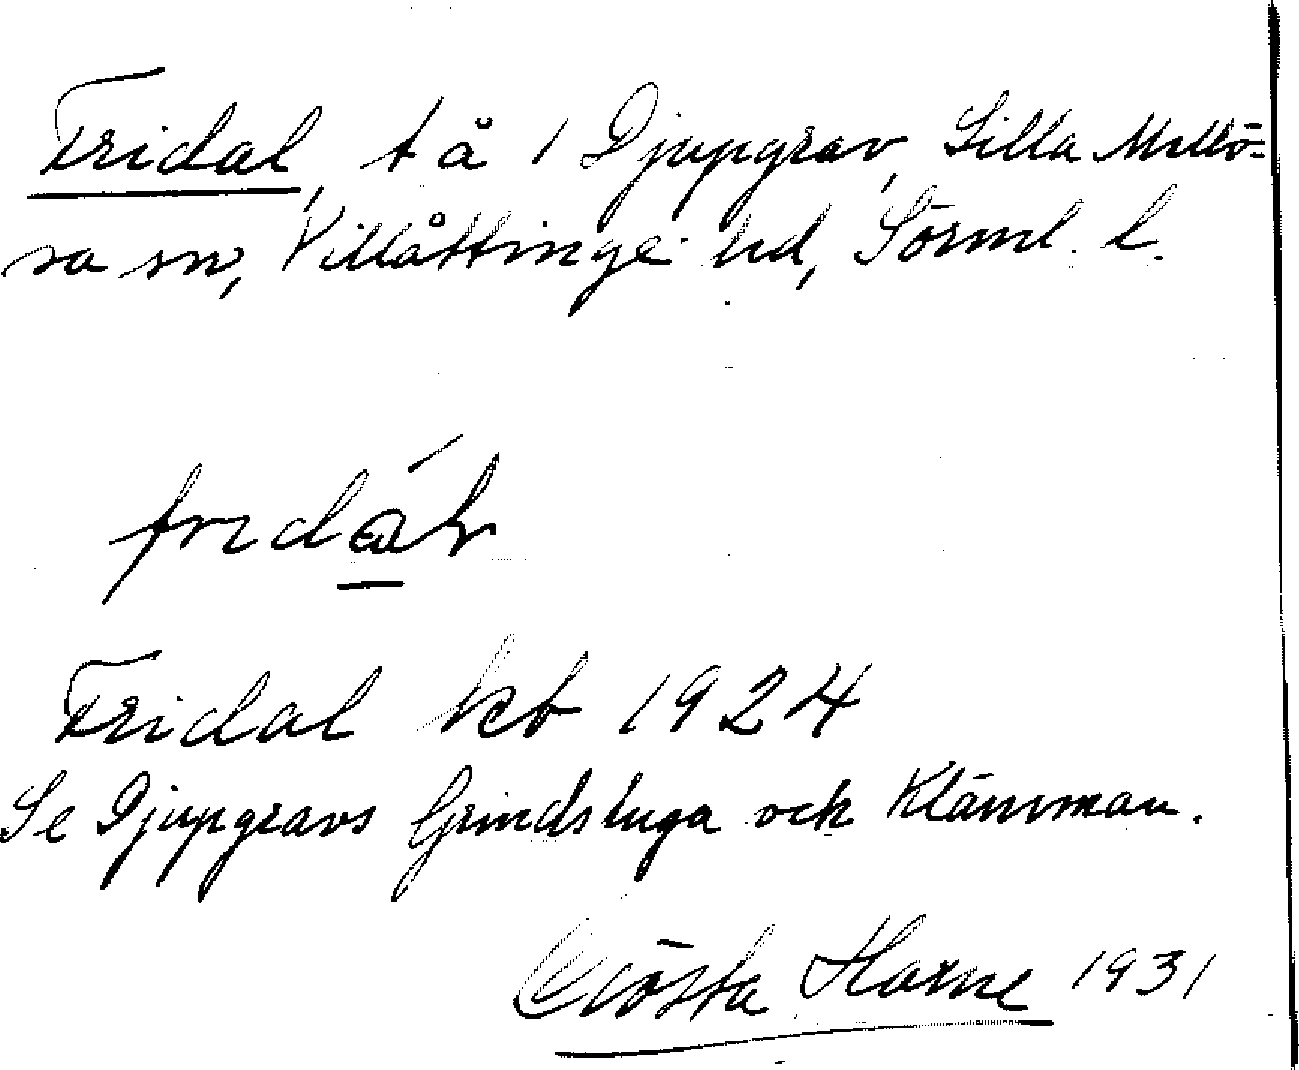 Fridal, t å 1 Djupgrav, Lilla Mellö-
sa sn, Villåttinge hd, Sörml. l.
Fridal kb 1924
Se Djupgravs Grindstuga och Klämman.
Gösta Horne 1931